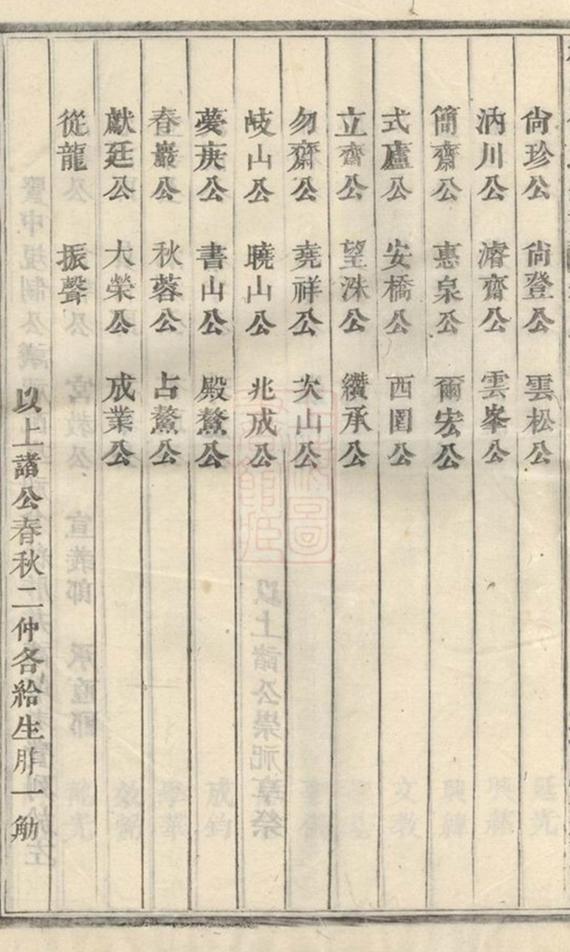 尙珍公　尙登公　雲松公
汭川公　濬齋公　雲峯公
簡齋公　惠泉公　爾宏公
式廬公　安橋公　西圍公
立齋公　望洙公　纘承公
勿齋公　堯祥公　次山公
岐山公　曉山公　兆成公
夢庚公　書山公　殿鰲公
春巖公　秋蓉公　占鰲公
獻廷公　大榮公　成業公
從龍　振聲
以上諸公春秋二仲各給生胙一觔